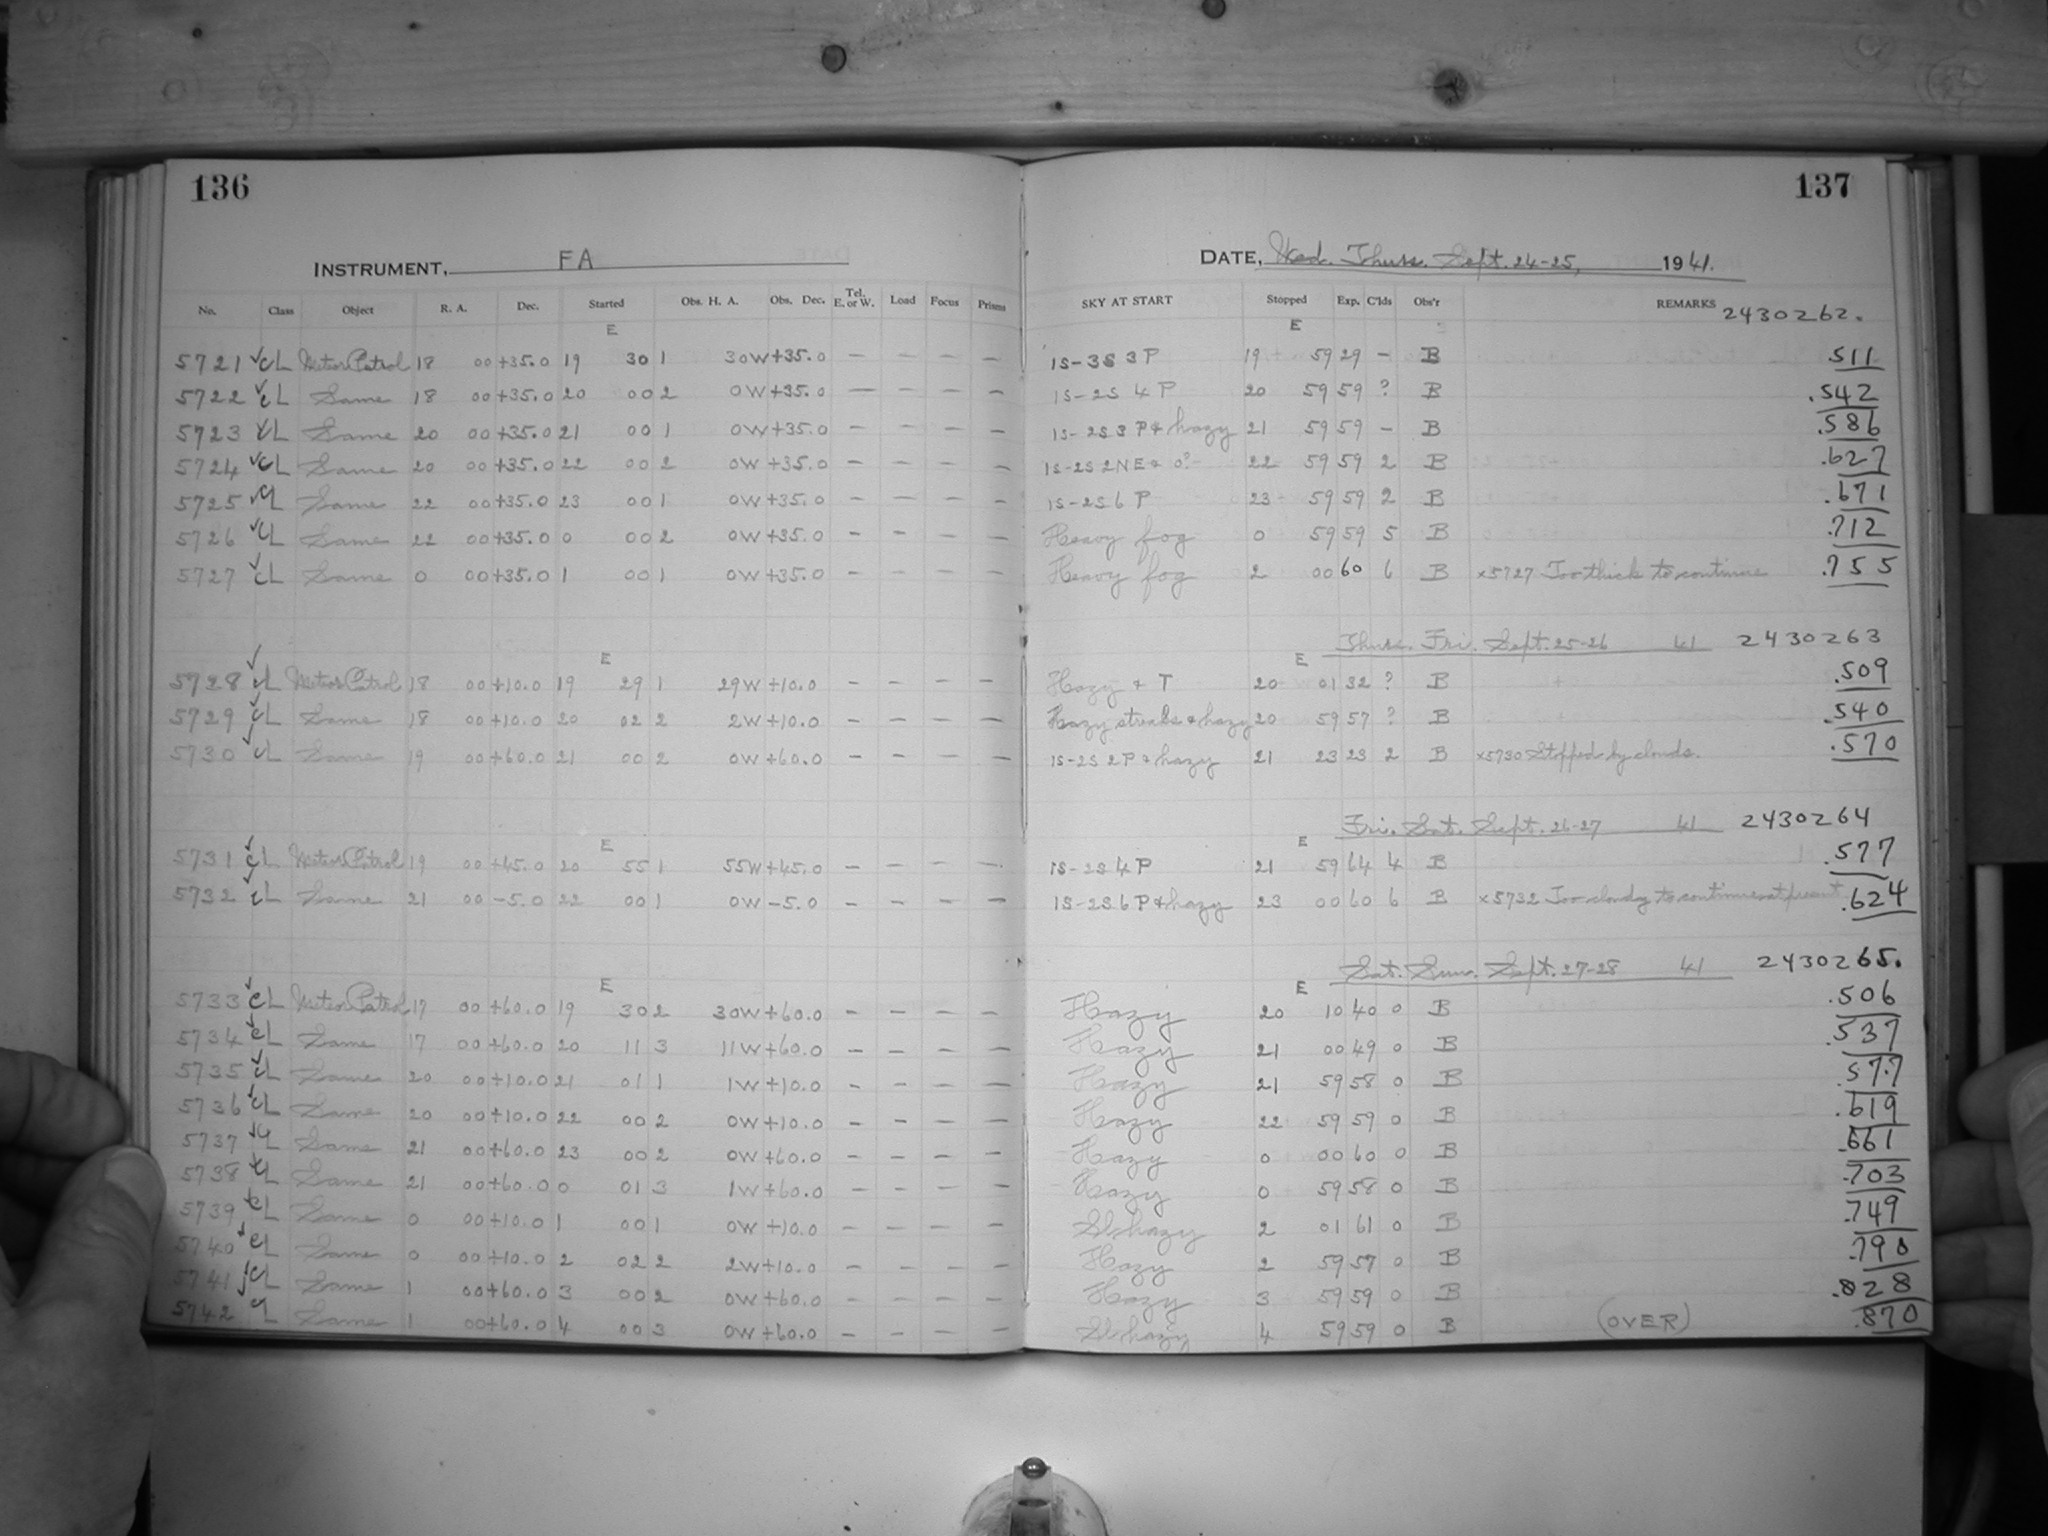 136
137
INSTRUMENT, FA
DATE, Wed. Thurs. Sept. 24-25, 1941.
No. Class Object R. A. Dec. Started Obs. H. A. Obs. Dec. Tel. E. or W. Load Focus Prisms SKY AT START Stopped Exp. C'lds Obs'r REMARKS 2430262.
E E
5721 √CL Meteor Patrol 18 00 +35.0 19 30 1 30W +35.0 — — — — 1S-3S 3P 19 59 29 — B .511
5722 √CL Same 18 00 +35.0 20 00 2 0W +35.0 — — — — 1S-2S 4P 20 59 59 ? B .542
5723 √CL Same 20 00 +35.0 21 00 1 0W +35.0 — — — — 1S-2S 3P + hazy 21 59 59 — B .586
5724 √CL Same 20 00 +35.0 22 00 2 0W +35.0 — — — — 1S-2S 2NE + 0? 22 59 59 2 B .627
5725 √CL Same 22 00 +35.0 23 00 1 0W +35.0 — — — — 1S-2S 6P 23 59 59 2 B .671
5726 √CL Same 22 00 +35.0 0 00 2 0W +35.0 — — — — Heavy fog 0 59 59 5 B .712
5727 √CL Same 0 00 +35.0 1 00 1 0W +35.0 — — — — Heavy fog 2 00 60 6 B x5727 Too thick to continue .755
Thurs. Fri. Sept. 25-26 41 2430263
E E
5728 √CL Meteor Patrol 18 00 +10.0 19 29 1 29W +10.0 — — — — Hazy + T 20 01 32 ? B .509
5729 √CL Same 18 00 +10.0 20 02 2 2W +10.0 — — — — Hazy streaks + hazy 20 59 57 ? B .540
5730 √CL Same 19 00 +60.0 21 00 2 0W +60.0 — — — — 1S-2S 2P + hazy 21 23 23 2 B x5730 Stopped by clouds. .570
Fri. Sat. Sept. 26-27 41 2430264
E E
5731 √CL Meteor Patrol 19 00 +45.0 20 55 1 55W +45.0 — — — — 1S-2S 4P 21 59 64 4 B .577
5732 √CL Same 21 00 -5.0 22 00 1 0W -5.0 — — — — 1S-2S 6P + hazy 23 00 60 6 B x5732 Too cloudy to continue at present .624
Sat. Sun. Sept. 27-28 41 2430265.
E E
5733 √CL Meteor Patrol 17 00 +60.0 19 30 2 30W +60.0 — — — — Hazy 20 10 40 0 B .506
5734 √CL Same 17 00 +60.0 20 11 3 11W +60.0 — — — — Hazy 21 00 49 0 B .537
5735 √CL Same 20 00 +10.0 21 01 1 1W +10.0 — — — — Hazy 21 59 58 0 B .577
5736 √CL Same 20 00 +10.0 22 00 2 0W +10.0 — — — — Hazy 22 59 59 0 B .619
5737 √CL Same 21 00 +60.0 23 00 2 0W +60.0 — — — — Hazy 0 00 60 0 B .661
5738 √CL Same 21 00 +60.0 0 01 3 1W +60.0 — — — — Hazy 0 59 58 0 B .703
5739 √CL Same 0 00 +10.0 1 00 1 0W +10.0 — — — — Sl. hazy 2 01 61 0 B .749
5740 √CL Same 0 00 +10.0 2 02 2 2W +10.0 — — — — Hazy 2 59 57 0 B .790
5741 √CL Same 1 00 +60.0 3 00 2 0W +60.0 — — — — Hazy 3 59 59 0 B .828
5742 CL Same 1 00 +60.0 4 00 3 0W +60.0 — — — — Sl. hazy 4 59 59 0 B (OVER) .870